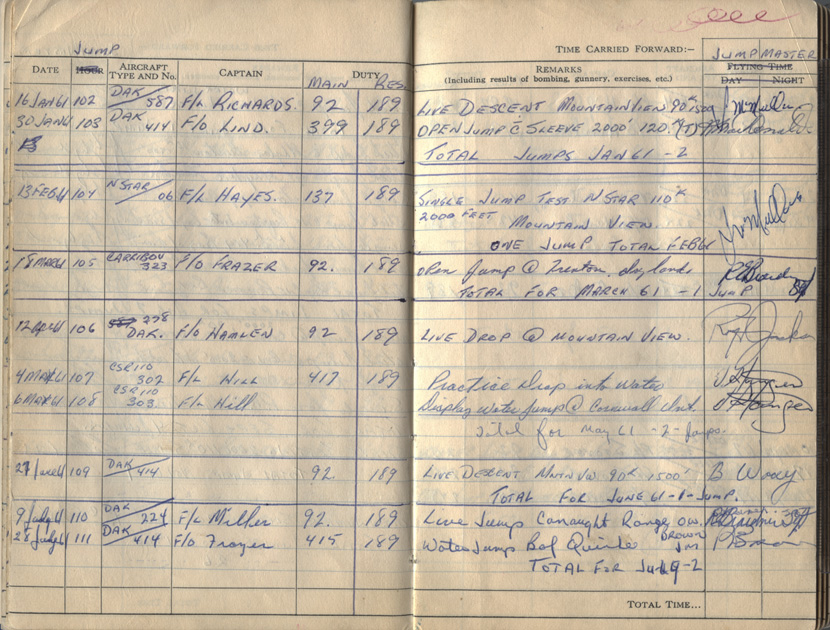 JUMP
DATE HOUR AIRCRAFT TYPE AND No. CAPTAIN DUTY
MAIN RES.
16 JAN 61 102 DAK 587 F/L RICHARDS. 92 189
30 JAN 61 103 DAK 414 F/O LIND. 399 189
13
13 FEB 61 104 N STAR 06 F/L HAYES. 137 189
18 MAR 61 105 CARRIBOU 323 F/O FRAZER 92. 189
12 Apr 61 106 278 DAK. F/O HAMLEN 92 189
4 MAY 61 107 CSR 110 302 F/L HILL 417 189
6 MAY 61 108 CSR 110 303 F/L Hill
27 June 61 109 DAK 414 92 189
9 July 61 110 DAK 224 F/L Miller 92. 189
28 July 61 111 DAK 414 F/O Frazer 415 189
TIME CARRIED FORWARD:–
JUMP MASTER
REMARKS
(Including results of bombing, gunnery, exercises, etc.)
FLYING TIME
DAY NIGHT
LIVE DESCENT MOUNTAIN VIEW 90K 1500
OPEN JUMP C SLEEVE 2000' 120K
TOTAL JUMPS JAN 61 - 2
SINGLE JUMP TEST N STAR 110K
2000 FEET MOUNTAIN VIEW.
ONE JUMP TOTAL FEB 61
Open Jump @ Trenton,
TOTAL FOR MARCH 61 - 1 JUMP
LIVE DROP @ MOUNTAIN VIEW.
Practice Drop into Water
Display Water Jump @ Cornwall Ont.
Total for May 61 - 2 - Jumps.
LIVE DESCENT MNTN VW 90K 1500' B Woody
TOTAL FOR JUNE 61 - 1 - JUMP.
Live Jump Conaught Range Ow.
Water Jump Bay Quinte BROWN JM
TOTAL FOR July - 2
TOTAL TIME...